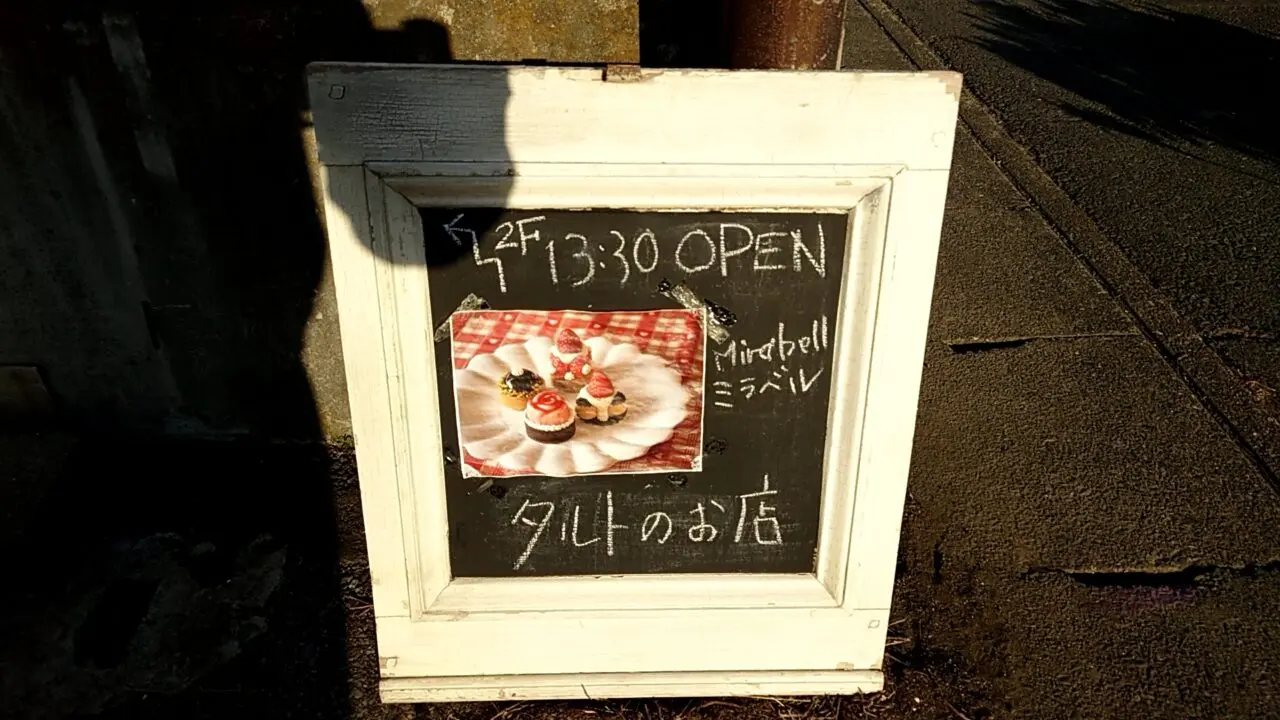 2F 13:30 OPEN
Mirabell
ミラベル
タルトのお店